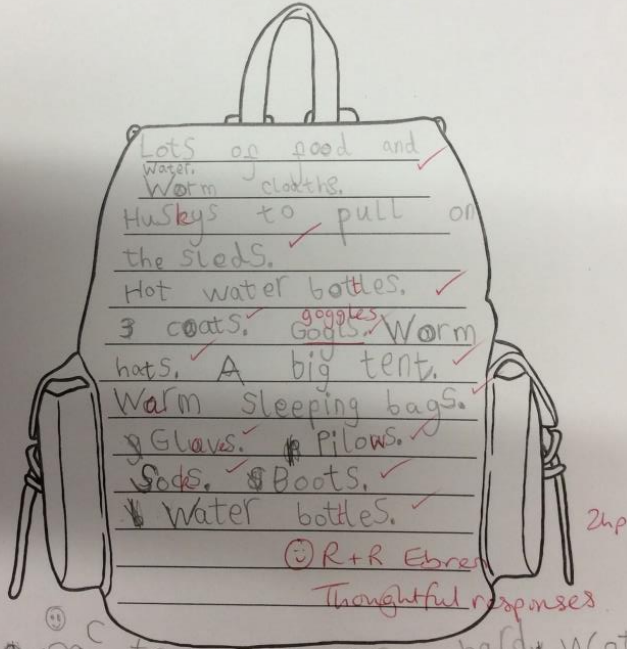 Lots of food and
water.
Worm cloaths.
Huskys to pull on
the sleds.
Hot water bottles.
goggles
3 coats. Gogls. Worm
hats. A big tent.
Warm sleeping bags.
Glaves. Pilows.
Socks. Boots.
Water bottles.
2hp
R+R
Thoughtful responses
C